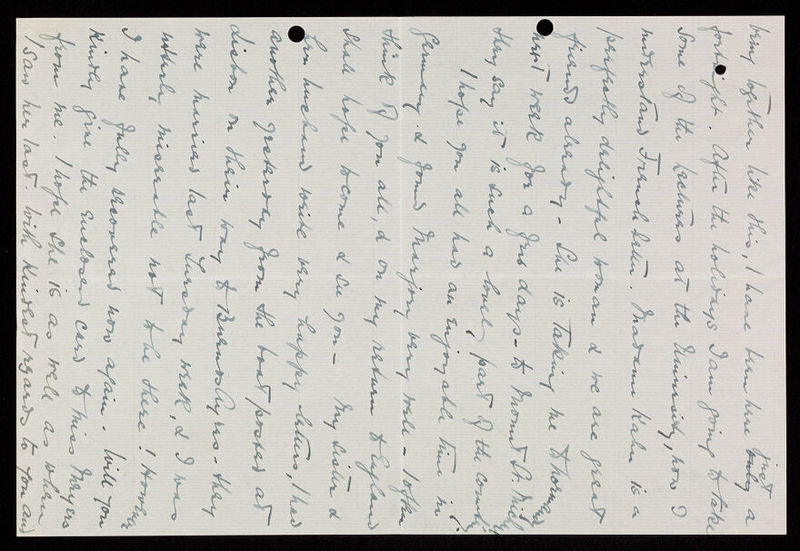 being together like this, I have been here just a
fortnight. After the holidays I am going to take
some of the lectures at the University, now I
understand French better. Madame Hahn is a
perfectly delightful woman & we are great
friends already. She is taking me to
next week for a few days - to Mount St. Mich
they say it is such a lovely part of the country
I hope you all had an enjoyable time in
Germany & found Marjory very well - I often
think of you all, & on my return to England
shall hope to come & see you - My sister &
her husband write very happy letters, I had
another yesterday from the boat posted at
Lisbon on their way to Buenos Ayres - they
were married last Tuesday week, & I was
utterly miserable not to be there! However
I have fully recovered now again. Will you
kindly give the enclosed card to Miss Meyers
from me. I hope she is as well as when
I saw her last. With kindest regards to you and